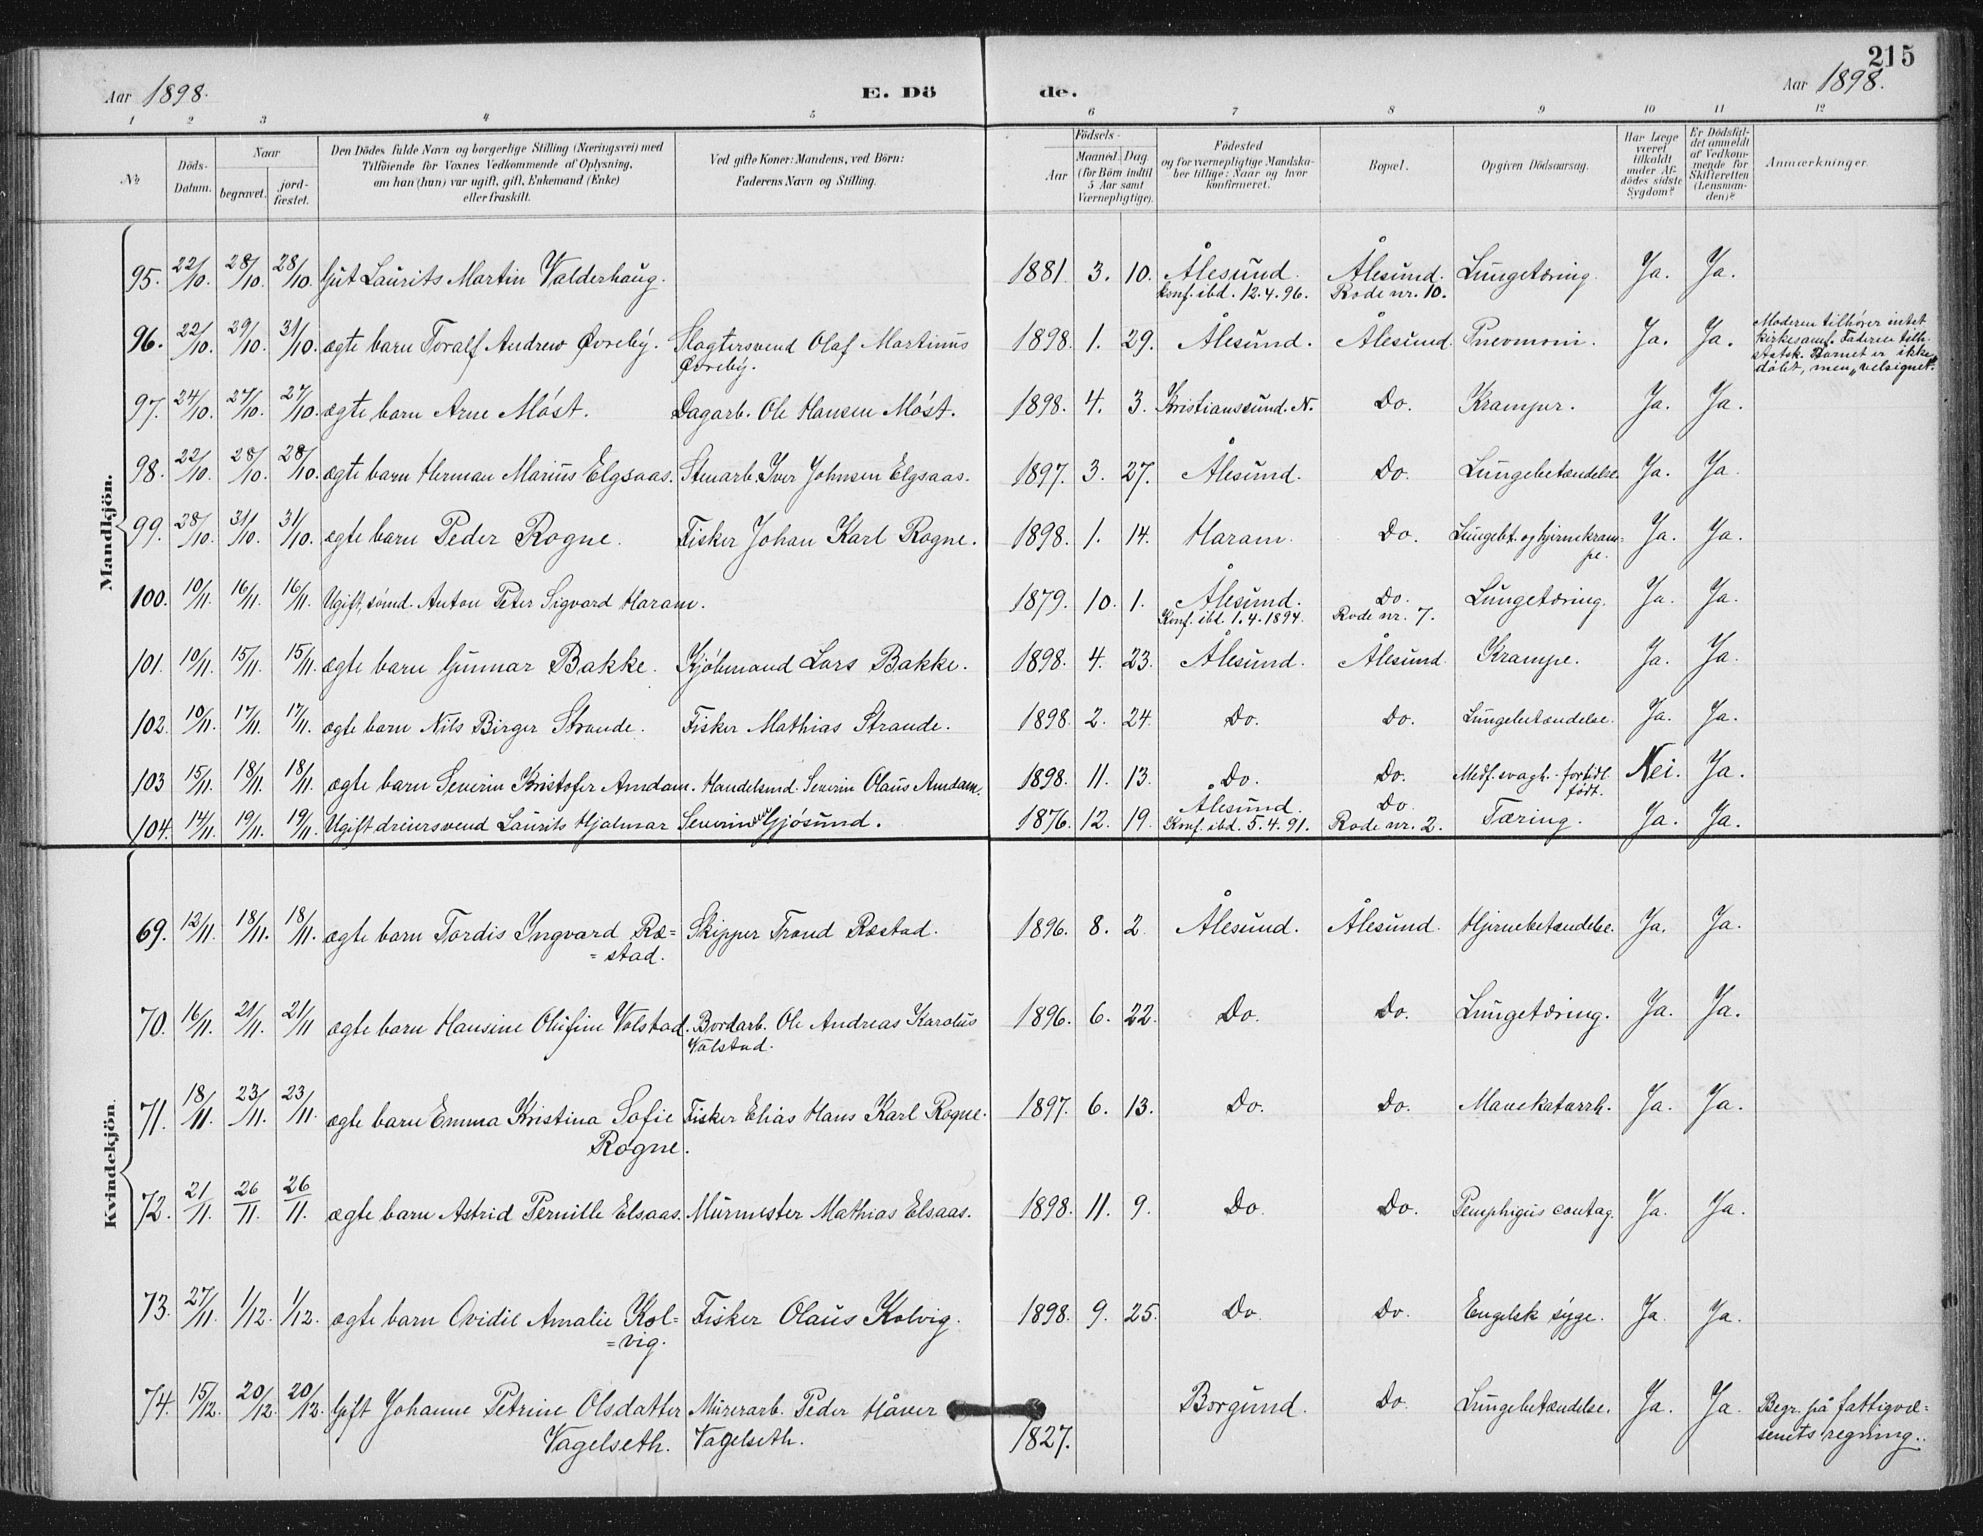 215
Aar 1898.
E. Dö
de.
Aar 1898.
1 2 3 4 5 6 7 8 9 10 11 12
№
Döds-Datum.
Naar
begravet.
jord-fæstet.
Den Dödes fulde Navn og borgerlige Stilling (Næringsvei) med
Tilföiende for Voxnes Vedkommende af Oplysning,
om han (hun) var ugift, gift, Enkemand (Enke)
eller fraskilt.
Ved gifte Koner: Mandens, ved Börn:
Faderens Navn og Stilling.
Födsels-
Aar
Maaned. Dag.
(for Börn indtil
5 Aar samt
Værnepligtige).
Födested
og for værnepligtige Mandska-
ber tillige: Naar og hvor
konfirmeret.
Bopæl.
Opgiven Dödsaarsag.
Har Læge
været
tilkaldt
under Af-
dödes sidste
Sygdom?
Er Dödsfal-
det anmeldt
af Vedkom-
mende for
Skifteretten
(Lensman-
den)?
Anmærkninger.
Mandkjön.
95. 22/10. 28/10. 28/10. Gut Laurits Martin Valderhaug. 1881. 3. 10. Ålesund. Ålesund. Lungetæring. Ja. Ja.
konf. ibd. 12.4.96. Rode nr. 10.
96. 22/10. 29/10. 31/10. ægte barn Toralf Andrew Øvreby. Slagtersvend Olaf Martinus 1898. 1. 29. Ålesund. Ålesund. Pneomoni. Ja. Ja. Moderen tilhører intet
Øvreby. kirkesamf. Faderen tilh.
Statsk. Barnet er ikke
døbt, men "velsignet".
97. 24/10. 27/10. 27/10. ægte barn Arne Møst. Dagarb. Ole Hansen Møst. 1898. 4. 3. Kristianssund. N. Do. Kramper. Ja. Ja.
98. 22/10. 28/10. 28/10. ægte barn Herman Marius Elgsaas. Stenarb. Iver Johnsen Elgsaas. 1897. 3. 27. Ålesund. Do. Lungebetændelse. Ja. Ja.
99. 28/10. 31/10. 31/10. ægte barn Peder Rogne. Fisker Johan Karl Rogne. 1898. 1. 14. Haram. Do. Lungebt. og hjernekram=
pe. Ja. Ja.
100. 10/11. 16/11. 16/11. Ugift, sømd. Anton Peter Sigvard Haram. 1879. 10. 1. Ålesund. Do. Lungetæring. Ja. Ja.
Konf. ibd. 1.4.1894. Rode nr. 7.
101. 10/11. 15/11. 15/11. ægte barn Gunnar Bakke. Kjøbmand Lars Bakke. 1898. 4. 23. Ålesund. Ålesund. Krampe. Ja. Ja.
102. 10/11. 17/11. 17/11. ægte barn Nils Birger Strande. Fisker Mathias Strande. 1898. 2. 24. Do. Do. Lungebetændelse. Ja. Ja.
103 15/11. 18/11. 18/11. ægte barn Severin Kristofer Amdam. Handelsmd. Severin Olaus Amdam. 1898. 11. 13. Do. Do. Medf. svagh. fortidl. født. Nei. Ja.
104. 14/11. 19/11. 19/11. Ugift dreiersvend Laurits Hjalmar Severin Gjøsund. 1876. 12. 19. Ålesund. Do. Tæring. Ja. Ja.
Konf. ibd. 5.4.91. Rode nr. 2.
Kvindekjön.
69. 12/11. 18/11. 18/11. ægte barn Tordis Yngvard Ræ= Skipper Trond Ræstad. 1896. 8. 2. Ålesund. Ålesund. Hjernebetændelse. Ja. Ja.
=stad.
70. 16/11. 21/11. 21/11 ægte barn Hansine Olufine Valstad. Bordarb. Ole Andreas Karolus 1896. 6. 22. Do. Do. Lungetæring. Ja. Ja.
Valstad.
71. 18/11. 23/11. 23/11. ægte barn Emma Kristina Sofie Fisker Elias Hans Karl Rogne. 1897. 6. 13. Do. Do. Mavekatarrh. Ja. Ja.
Rogne.
72. 21/11. 26/11. 26/11. ægte barn Astrid Pernille Elsaas. Murmester Mathias Elsaas. 1898. 11. 9. Do. Do. Pemphigus contag. Ja. Ja.
73. 27/11. 1/12. 1/12. ægte barn Ovidie Amalie Kol= Fisker Olaus Kolvig. 1898. 9. 25. Do Do. Engelsk syge. Ja. Ja.
=vig.
74. 15/12. 20/12. 20/12. Gift Johanne Petrine Olsdatter Murerarb. Peder Håver Borgund. Do. Lungebetændelse. Ja. Ja. Begr. på fattigvæ=
Vagelseth. Vagelseth. 1827. senets regning.